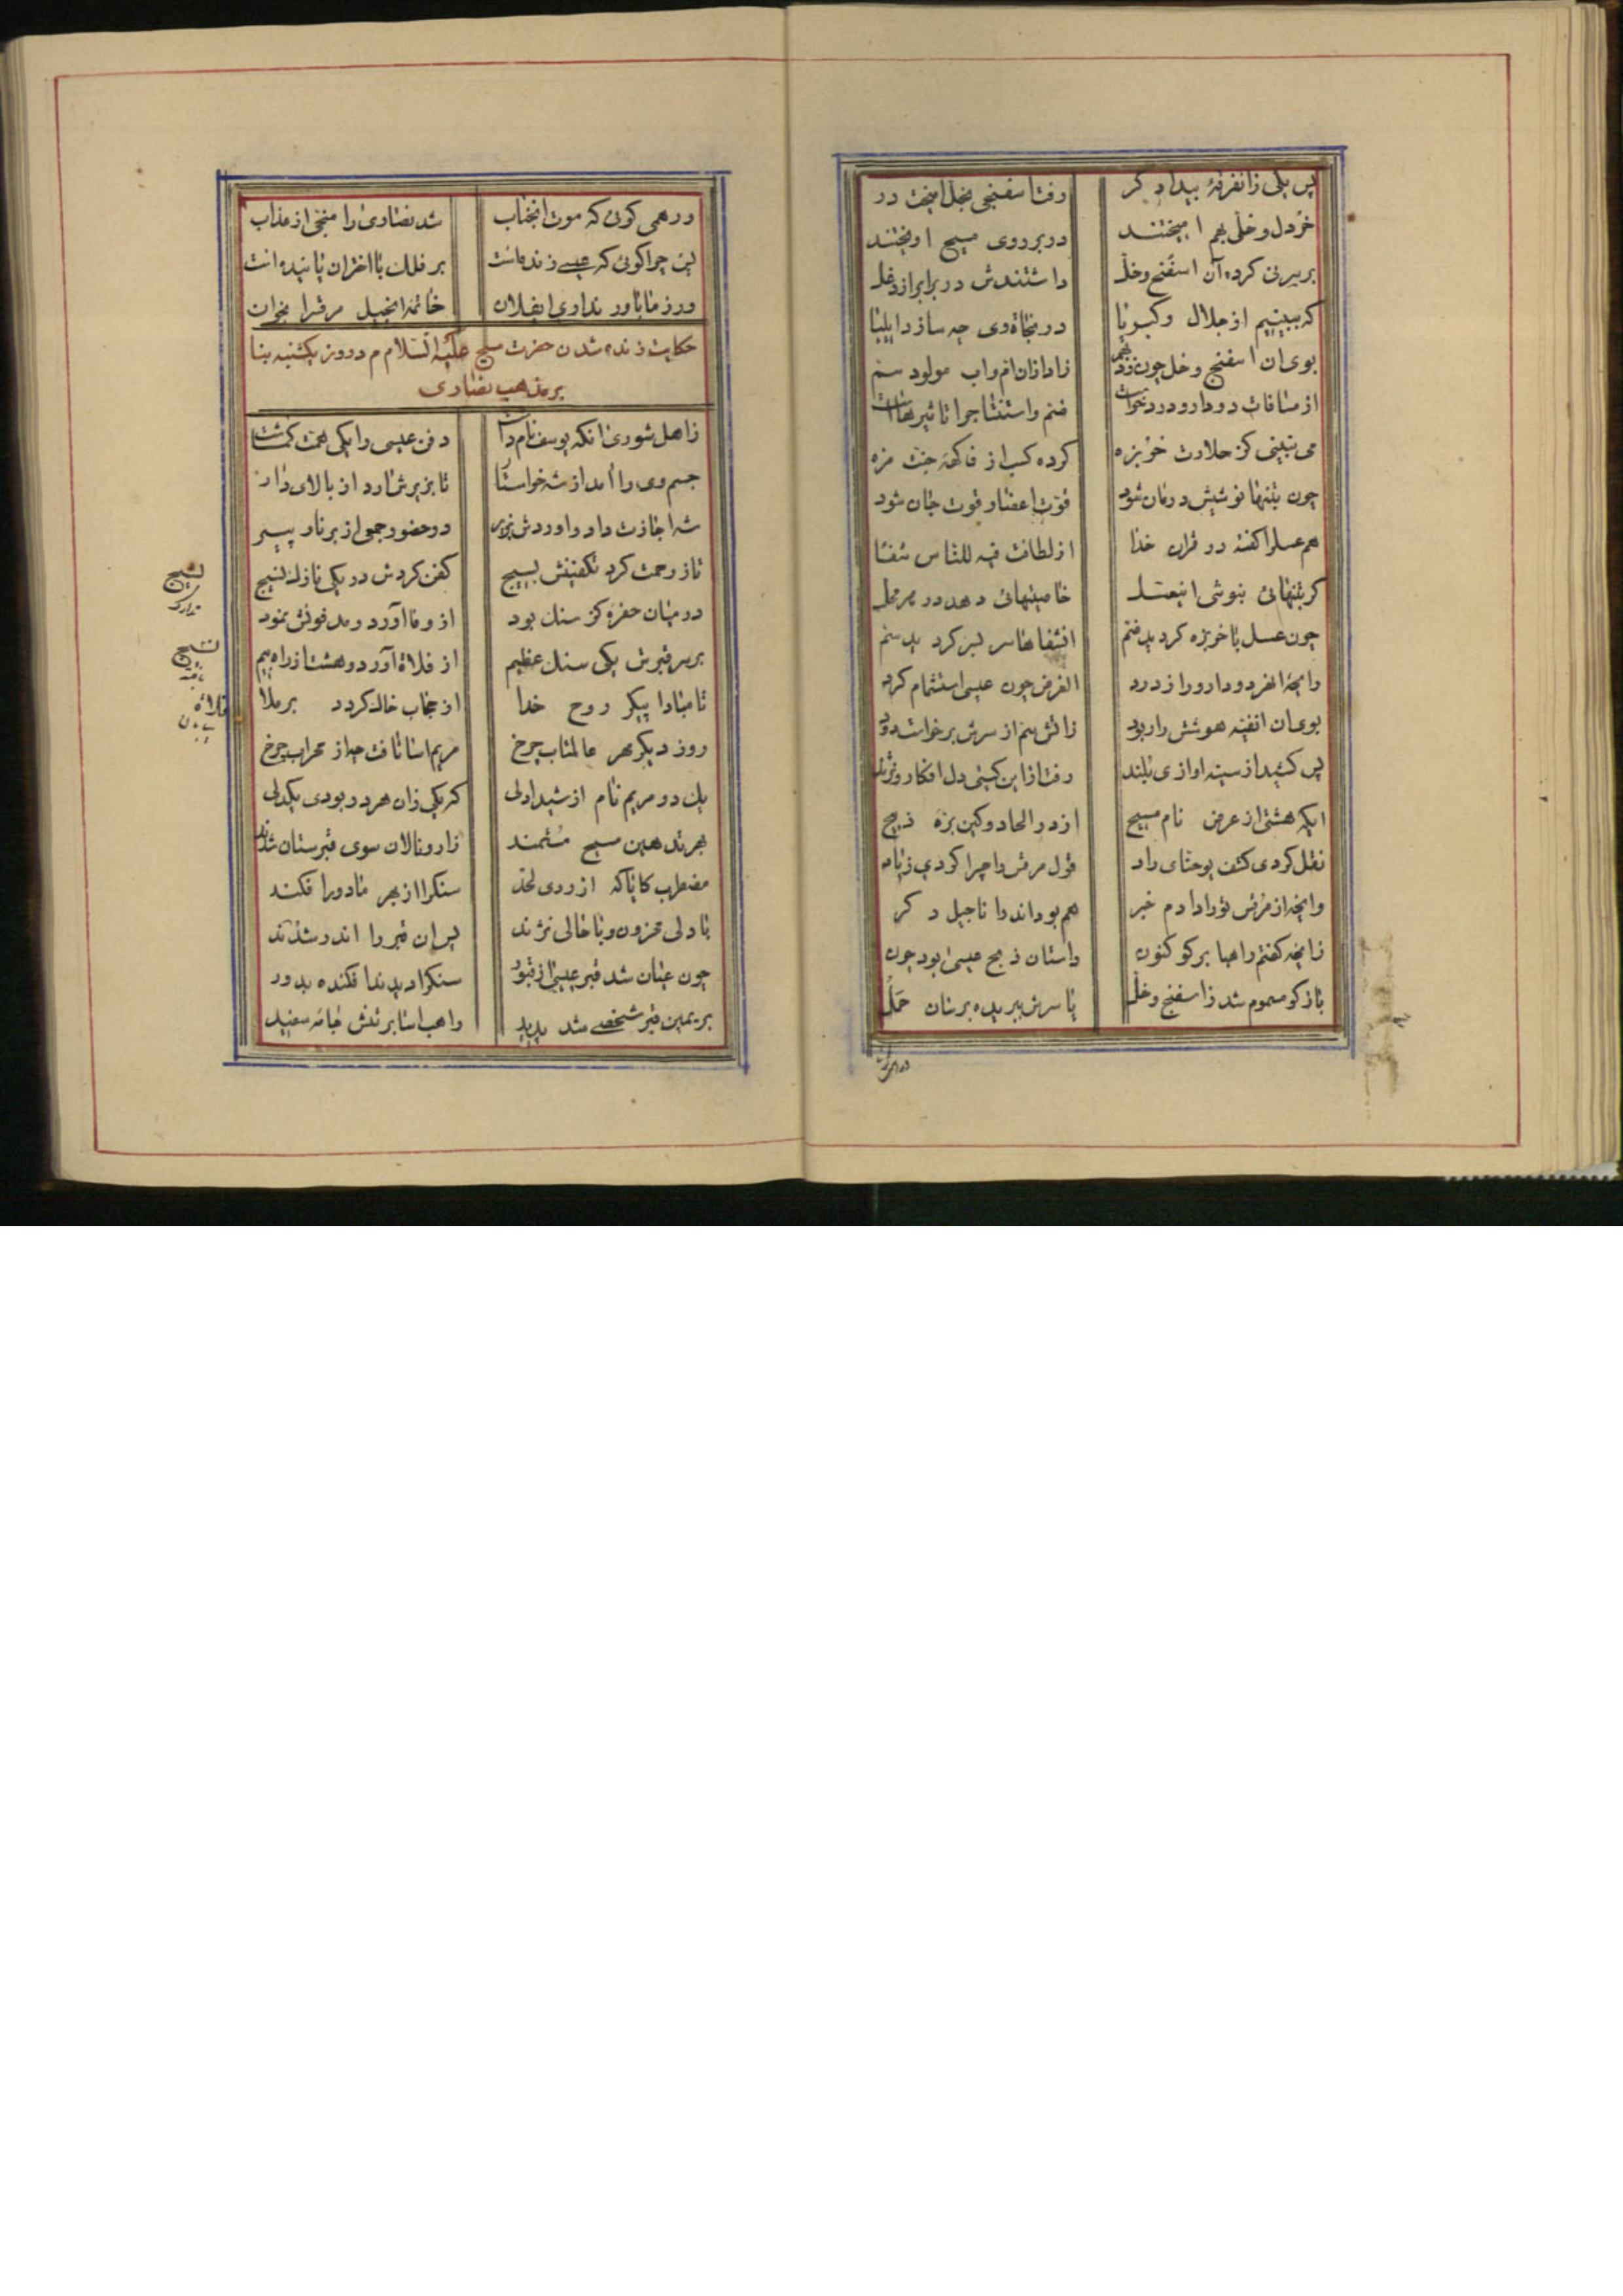 پس یکی زانفرقهٔ بیدادگر رفت اسفنجی بخل امیخت در
خردل و خلی بهم امیختند در بر روی مسیح اویختند
بر سر نی کرده آن اسفنج و خل داشتندش در برابر از دغل
که ببینیم از جلال و کبریا در نجاة وی چه سازد ایلیا
بوی ان اسفنج و خل چون زد بهم زاد ازان ام و اب مولود سم
از منافات دو دارو درد خواست ضم و استنتاجرا تاثیرهاست
می نبینی کز حلاوت خربزه کرده کسب از فاکههٔ جنت مزه
چون بتنها نوشیش درمان شود قوت اعضا و قوت جان شود
هم عسلرا گفته در قران خدا از لطافت فیه للناس شفا
گر بتنهائی بنوشی ان عسل خاصیتهائی دهد در هر محل
چون عسل با خربزه گردید ضم ان شفاها سر بسر گردید سم
رایحهٔ انفرد و دارو را ز درد الغرض چون عیسی استشمام کرد
بوی ان انفتنه هوشش را ربود زاتش سم از سرش برخاست دود
پس کشید از سینه اوازی بلند رفت از این گیتی دل افکار و نژند
ایکه هشتی از غرض نام مسیح از در الحاد و کین بره ذبیح
نقل کردی کشف یوحنای راد قول مرقس را چرا کردی ز یاد
وانچه از مرقس تو را دادم خبر هم بود اندر اناجیل دگر
زانچه گفتم راهبا برگو کنون داستان ذبح عیسی بود چون
باز گو مسموم شد ز اسفنج و خل یا سرش ببریده برسان حمل
ور همی گوئی که موت انجناب شد نصاری را منجی از عذاب
پس چرا گوئی که عیسی زنده است بر فلک با اختران پاینده است
ور ز ما باور نداری ایفلان خاتمهٔ انجیل مرقس را بخوان
حکایت زنده شدن حضرت مسیح علیه السلام در روز یکشنبه بنا
بر مذهب نصاری
زاهل شوری انکه یوسف نام داشت دفن عیسی را یکی همت گماشت
جسم وی را امد از شه خواستار تا بزیرش ارد از بالای دار
شه اجازت داد و اوردش بزیر در حضور جمعی از برنا و پیر
تا ز رحمت کرد تکفینش بسیج کفن کردش در یکی نازک نسیج
در میان حفرهٔ کز سنگ بود از وفا آورد و مدفونش نمود
بر سر قبرش یکی سنگ عظیم از فلاة آورد و هشت از راه بیم
تا مبادا پیکر روح خدا از حجاب خاک گردد برملا
روز دیگر مهر عالمتاب چرخ مریم اسا تافت چو از محراب چرخ
یک دو مریم نام از شیدا دلی که یکی زان هر دو بودی یکدلی
بهر تدهین مسیح مستمند زار و نالان سوی قبرستان شدند
مضطرب کایا که از روی لحد سنگرا از بهر ما دور افکند
با دلی محزون و با حالی نژند پس ان قبر را اندر شدند
چون عیان شد قبر عیسی از قبور سنگرا دیدند افکنده بدور
بر یمین قبر شخصی شد پدید راهب اسا بر تنش جامه سفید
بسیج
تدارک
نسیج
بافته
فلاة
بیابان